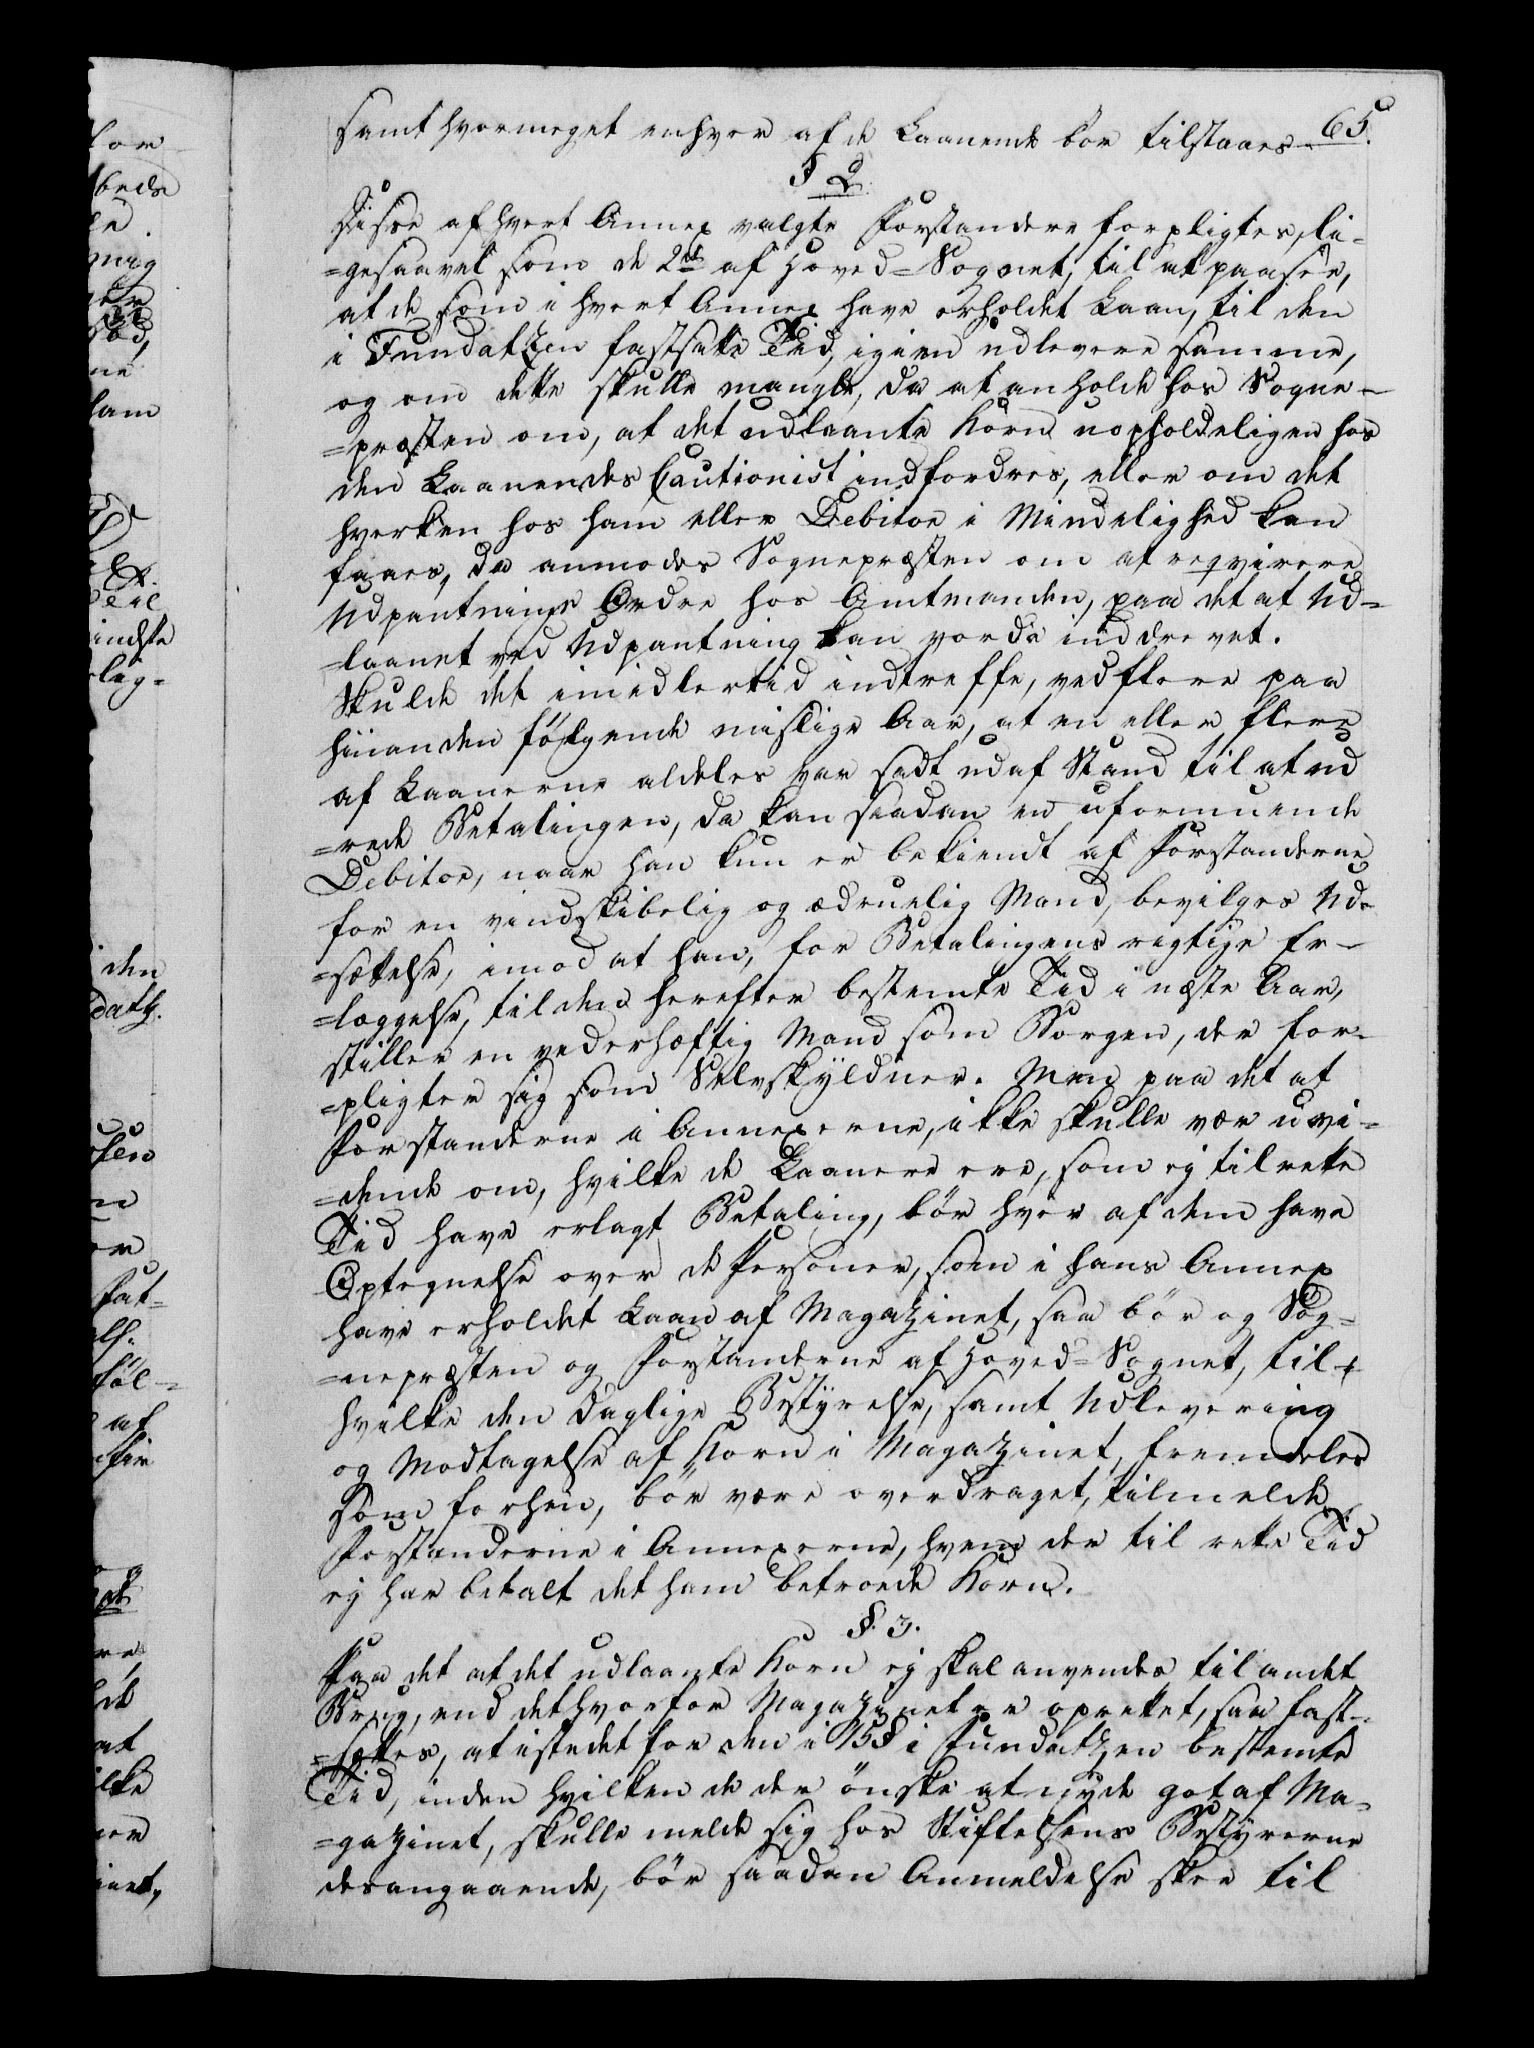 samt hvormeget enhver af de Laanende bör tilstaaes. 65.
§ 2.
Disse af hvert Annex valgte Forstandere forpligtes, li-
=gesaavel som de 2de af Hoved-Sognet, til at paasee,
at de som i hvert Annex have erholdet Laan, til den
i Fundatzen fastsatte Tid, igien udlevere samme,
og om dette skulle mangle, da at anholde hos Sogne-
=præsten om, at det udlaante Korn uopholdeligen hos
den Laanendes Cautionist indfordres, eller om det
hverken hos ham eller Debitor i Mindelighed kan
faaes, da anmodes Sognepræsten om at reqvirere
Udpantnings Ordre hos Amtmanden, paa det at Ud-
=laanet ved Udpantning kan vorde inddrevet.
Skulde det imidlertid indtreffe, ved flere paa
hinanden fölgende mislige Aar, at en eller flere
af Laanerne aldeles var sadt udaf Stand til at ud
=rede Betalingen, da kan saadan en uformuende
Debitor, naar han kun er bekiendt af Forstanderne
for en vindskibelig og ædruelig Mand, bevilges Ud-
=sættelse, imod at han, for Betalingens rigtige Er-
=læggelse, til den herefter bestemte Tid i næste Aar,
stiller en vederhæftig Mand som Borgen, der for-
=pligter sig som Selvskyldner. Men paa det at
Forstanderne i Annexerne, ikke skulle vær uvi-
=dende om, hvilke de Laanere ere, som ej til rette
Tid have erlagt Betaling, bör hver af dem have
Optegnelse over de Personer, som i hans Annex
have erholdet Laan af Magazinet, saa bör og Sog-
=nepræsten og Forstanderne af Hoved-Sognet, til
hvilke den daglige Bestyrelse, samt Udlevering
og Modtagelse af Korn i Magazinet, fremdeles
som forhen, bör være overdraget, tilmelde
Forstanderne i Annexerne, hvem der til rette Tid
ej har betalt det ham betroede Korn.
§. 3.
Paa det at det udlaante Korn ej skal anvendes til andet
Brug, end det hvorfor Magazinet er oprettet, saa fast-
=sættes, at istedet for den i 15 § i Fundatzen bestemte
Tid, inden hvilken de der önske at nyde got af Ma-
=gazinet, skulle melde sig hos Stiftelsens Bestyrerne
desangaaende, bör saadan Anmeldelse skee til